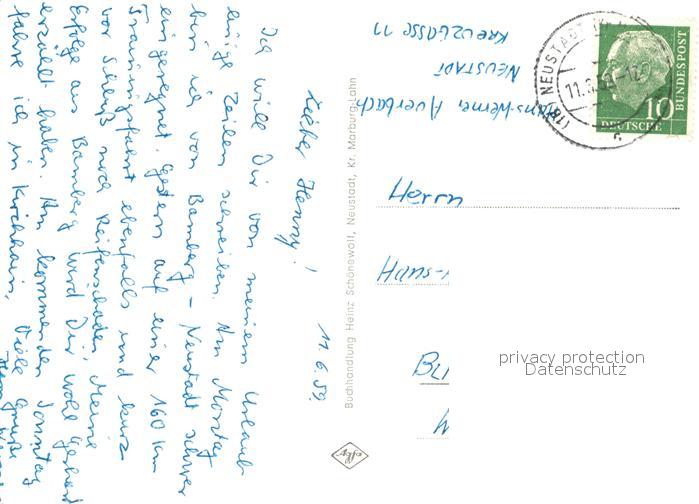 11.6.59.
Lieber Henny!
Ich will Dir von meinem Urlaub
einige Zeilen schreiben. Am Montag
bin ich von Bamberg - Neustadt schwer
eingeregnet. Gestern auf einer 160 km
Trainingsfahrt ebenfalls und kurz
vor Schluß noch Reifenschaden. Meine
Erfolge aus Bamberg wird Dir wohl Gerhard
erzählt haben. Am kommenden Sonntag
fahre ich in Kirchhain. Viele Grüße
Hans-Werner Auerbach
NEUSTADT
Kreuzgasse 11
NEUSTADT
11.6.59-12
DEUTSCHE
BUNDESPOST
10
Herrn
Hans-
privacy protection
Datenschutz
Buchhandlung Heinz Schönewolf, Neustadt, Kr. Marburg-Lahn
Agfa